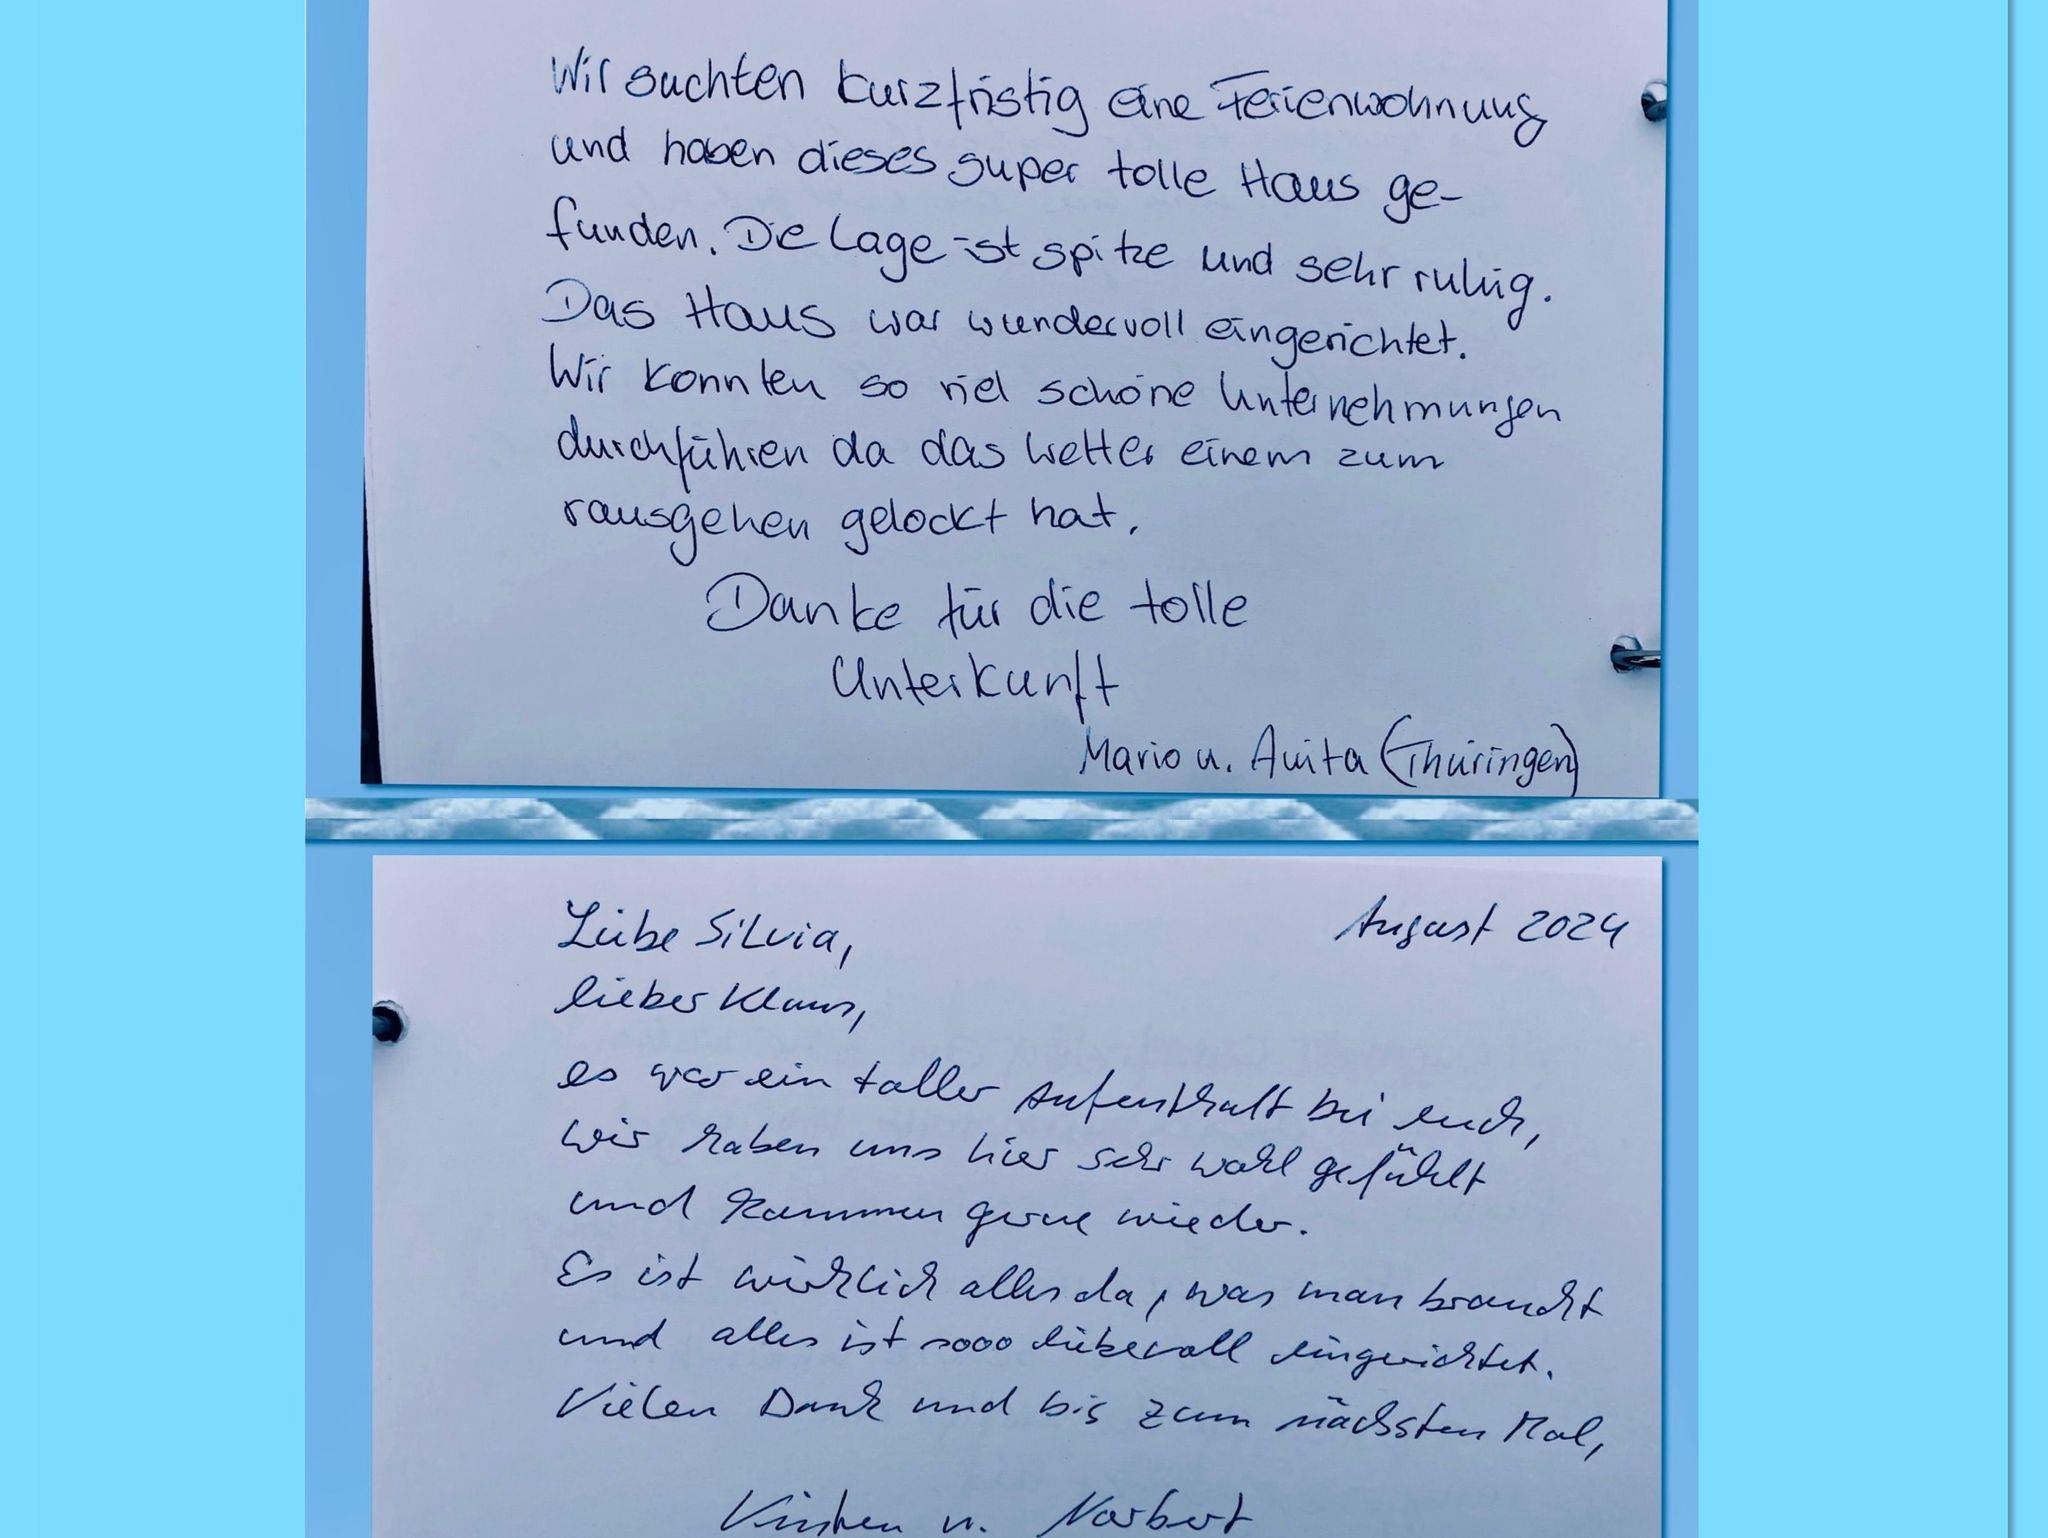 Wir suchten kurzfristig eine Ferienwohnung
und haben dieses super tolle Haus ge-
funden. Die Lage ist spitze und sehr ruhig.
Das Haus war wundervoll eingerichtet.
Wir konnten so viel schöne Unternehmungen
durchführen da das Wetter einem zum
rausgehen gelockt hat.
Danke für die tolle
Unterkunft
Mario u. Anita (Thüringen)
Liebe Silvia,
August 2024
lieber Klaus,
es war ein toller Aufenthalt bei euch,
wir haben uns hier sehr wohl gefühlt
und kommen gerne wieder.
Es ist wirklich alles da, was man braucht
und alles ist sooo liebevoll eingerichtet.
Vielen Dank und bis zum nächsten Mal,
Kirsten u. Norbert